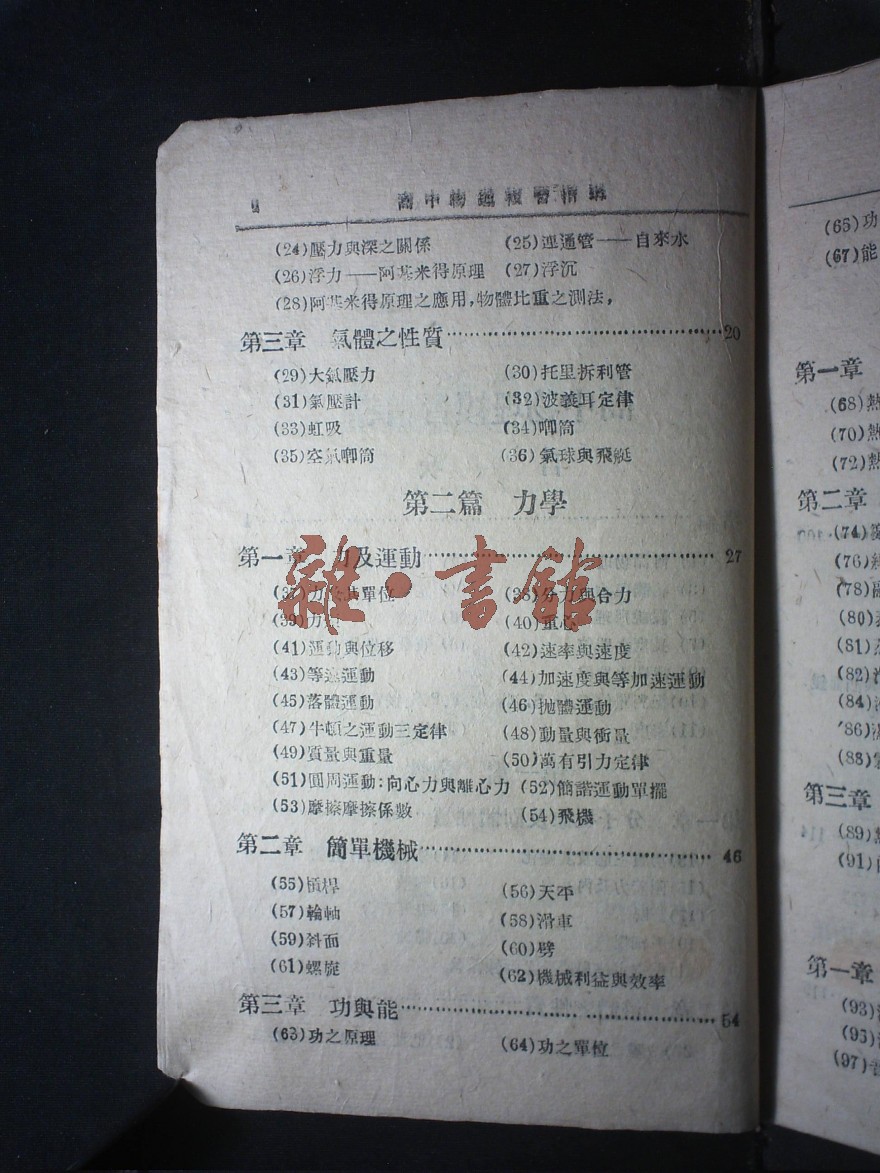 高中物理複習精講
(24)壓力與深之關係 (25)連通管——自來水
(26)浮力——阿基米得原理 (27)浮沉
(28)阿基米得原理之應用,物體比重之測法,
第三章 氣體之性質 20
(29)大氣壓力 (30)托里拆利管
(31)氣壓計 (32)波義耳定律
(33)虹吸 (34)唧筒
(35)空氣唧筒 (36)氣球與飛艇
第二篇 力學
第一章 力及運動 27
(37)力 單位 (38)分力與合力
(39)力 (40)重心
(41)運動與位移 (42)速率與速度
(43)等速運動 (44)加速度與等加速運動
(45)落體運動 (46)拋體運動
(47)牛頓之運動三定律 (48)動量與衝量
(49)質量與重量 (50)萬有引力定律
(51)圓周運動:向心力與離心力 (52)簡諧運動單擺
(53)摩擦摩擦係數 (54)飛機
第二章 簡單機械 46
(55)槓桿 (56)天平
(57)輪軸 (58)滑車
(59)斜面 (60)劈
(61)螺旋 (62)機械利益與效率
第三章 功與能 54
(63)功之原理 (64)功之單位
雜·書館
(65)功
(67)能
第一章
(68)熱
(70)熱
(72)熱
第二章
(74)
(76)
(78)
(80)
(81)
(82)
(84)
(86)
(88)
第三章
(89)
(91)
第一章
(93)
(95)
(97)